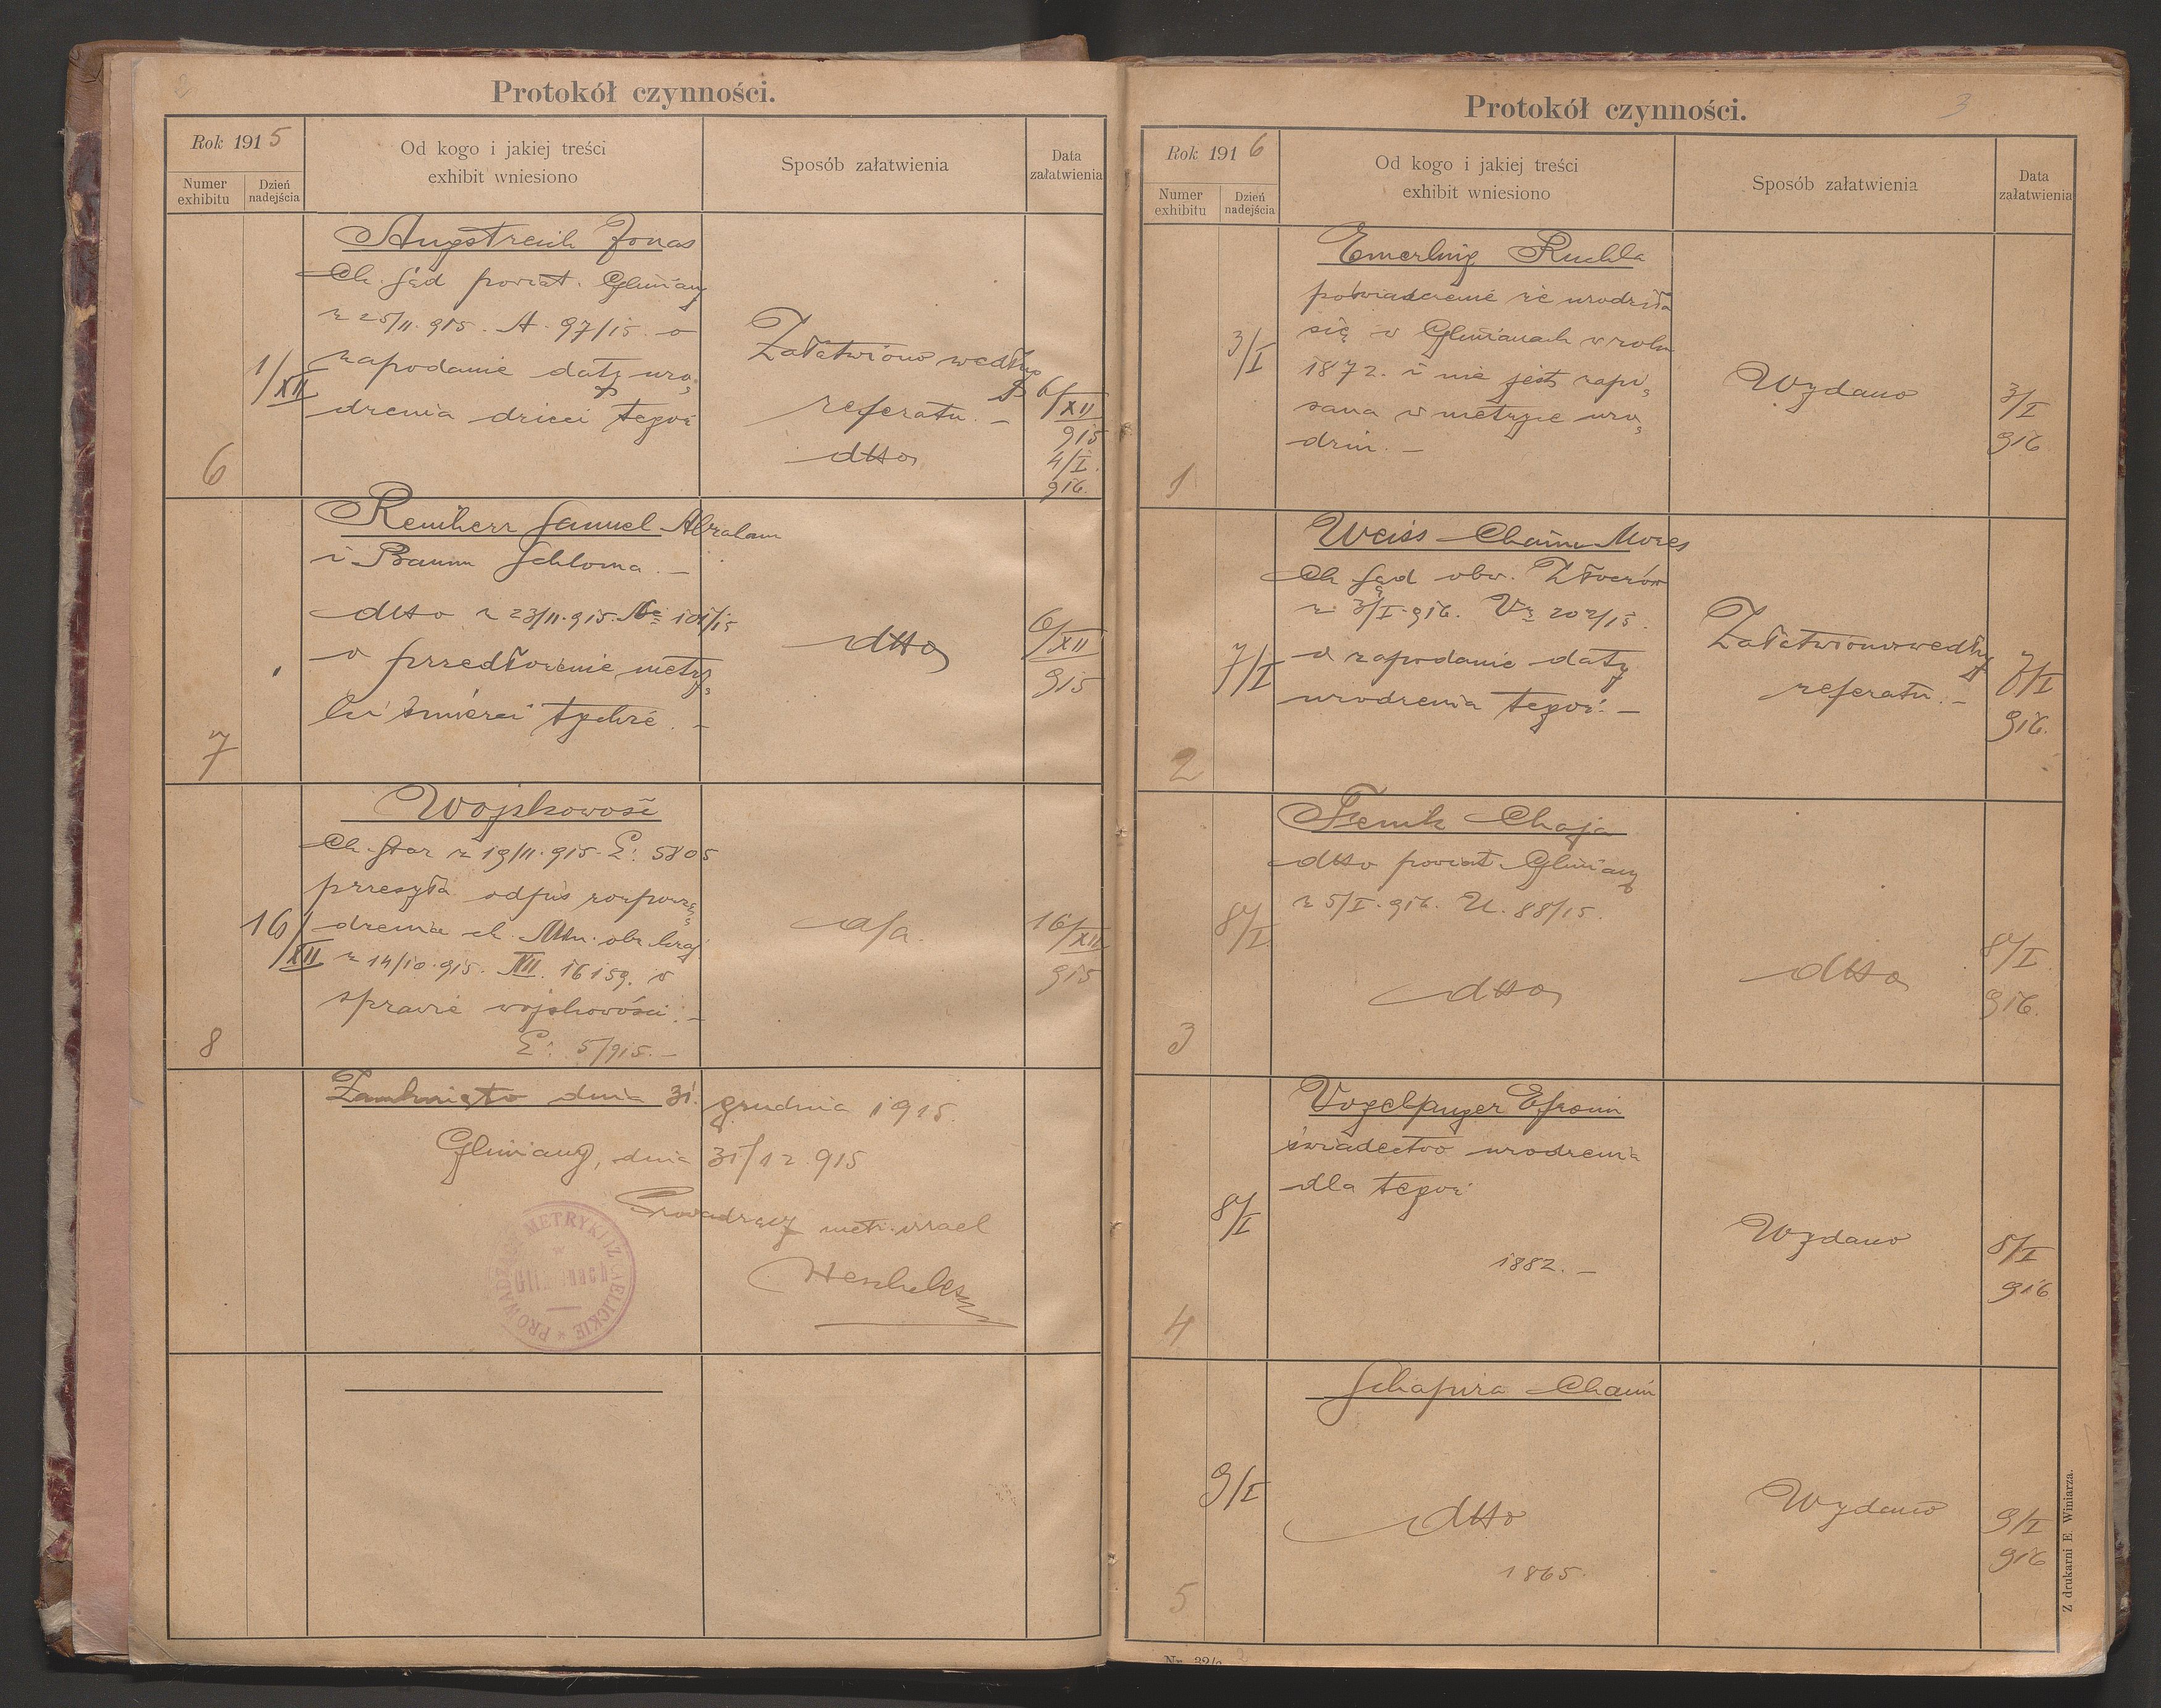 2
Protokół czynności.
Rok 1915
Numer exhibitu
Dzień nadejścia
Od kogo i jakiej treści
exhibit wniesiono
Sposób załatwienia
Data
załatwienia
6
1/XII
Angstreich Jonas
Ck. Sąd powiat. Gliniany
z 25/11. 915. A. 97/15 o
zapodanie daty uro„
dzenia dzieci tegoż
Załatwiono według
referatu. —
dtto
6/XII
915
4/I.
916.
7
Samuel Abraham
i Baum Schloma. —
dtto z 23/11. 915.
o przedłożenie metry„
ki śmierci tychże. —
dtto
6/XII
915
8
16/XII
Wojskowość
Ck. Star z 19/11. 915. L: 5805
przesyła odpis rozporzą„
dzenia ck. Min. obr. kraj
z 14/10. 915. XVII. 16159. w
sprawie wojskowości. —
L: 5/915. —
a/a.
16/XII
915
Zamknięto dnia 31. grudnia 1915.
Gliniany, dnia 31/12. 915
Prowadzący metr. izrael
PROWADZĄCY METRYKI IZRAELICKIE
w
Glinianach
3
Protokół czynności.
Rok 1916
Numer exhibitu
Dzień nadejścia
Od kogo i jakiej treści
exhibit wniesiono
Sposób załatwienia
Data
załatwienia
1
3/I
Emerling Ruchla
poświadczenie że urodziła
się w Glinianach w roku
1872. i nie jest zapi„
sana w metryce uro„
dzin. —
Wydano
3/I
916
2
7/I
Weiss Chaim Mozes
Ck Sąd obw. Złoczów
z 3/I. 916. Vr 202/15.
o zapodanie daty
urodzenia tegoż. —
Załatwiono według
referatu. —
7/I
916.
3
8/I
Chaja
dtto powiat. Gliniany
z 5/I. 916. U. 88/15.
dtto
dtto
8/I.
916.
4
8/I
Vogelfanger Efroim
świadectwo urodzenia
dla tegoż
1882. —
Wydano
8/I
916
5
9/I
Schapira Chaim
dtto
1865.
Wydano
9/I
916
Z drukarni E. Winiarza.